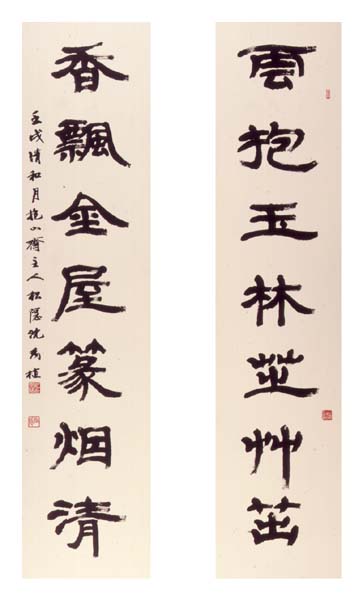 雲抱玉林芝艸茁
香飄金屋篆烟清
壬戌清和月抱山齋主人松隱沈禹植